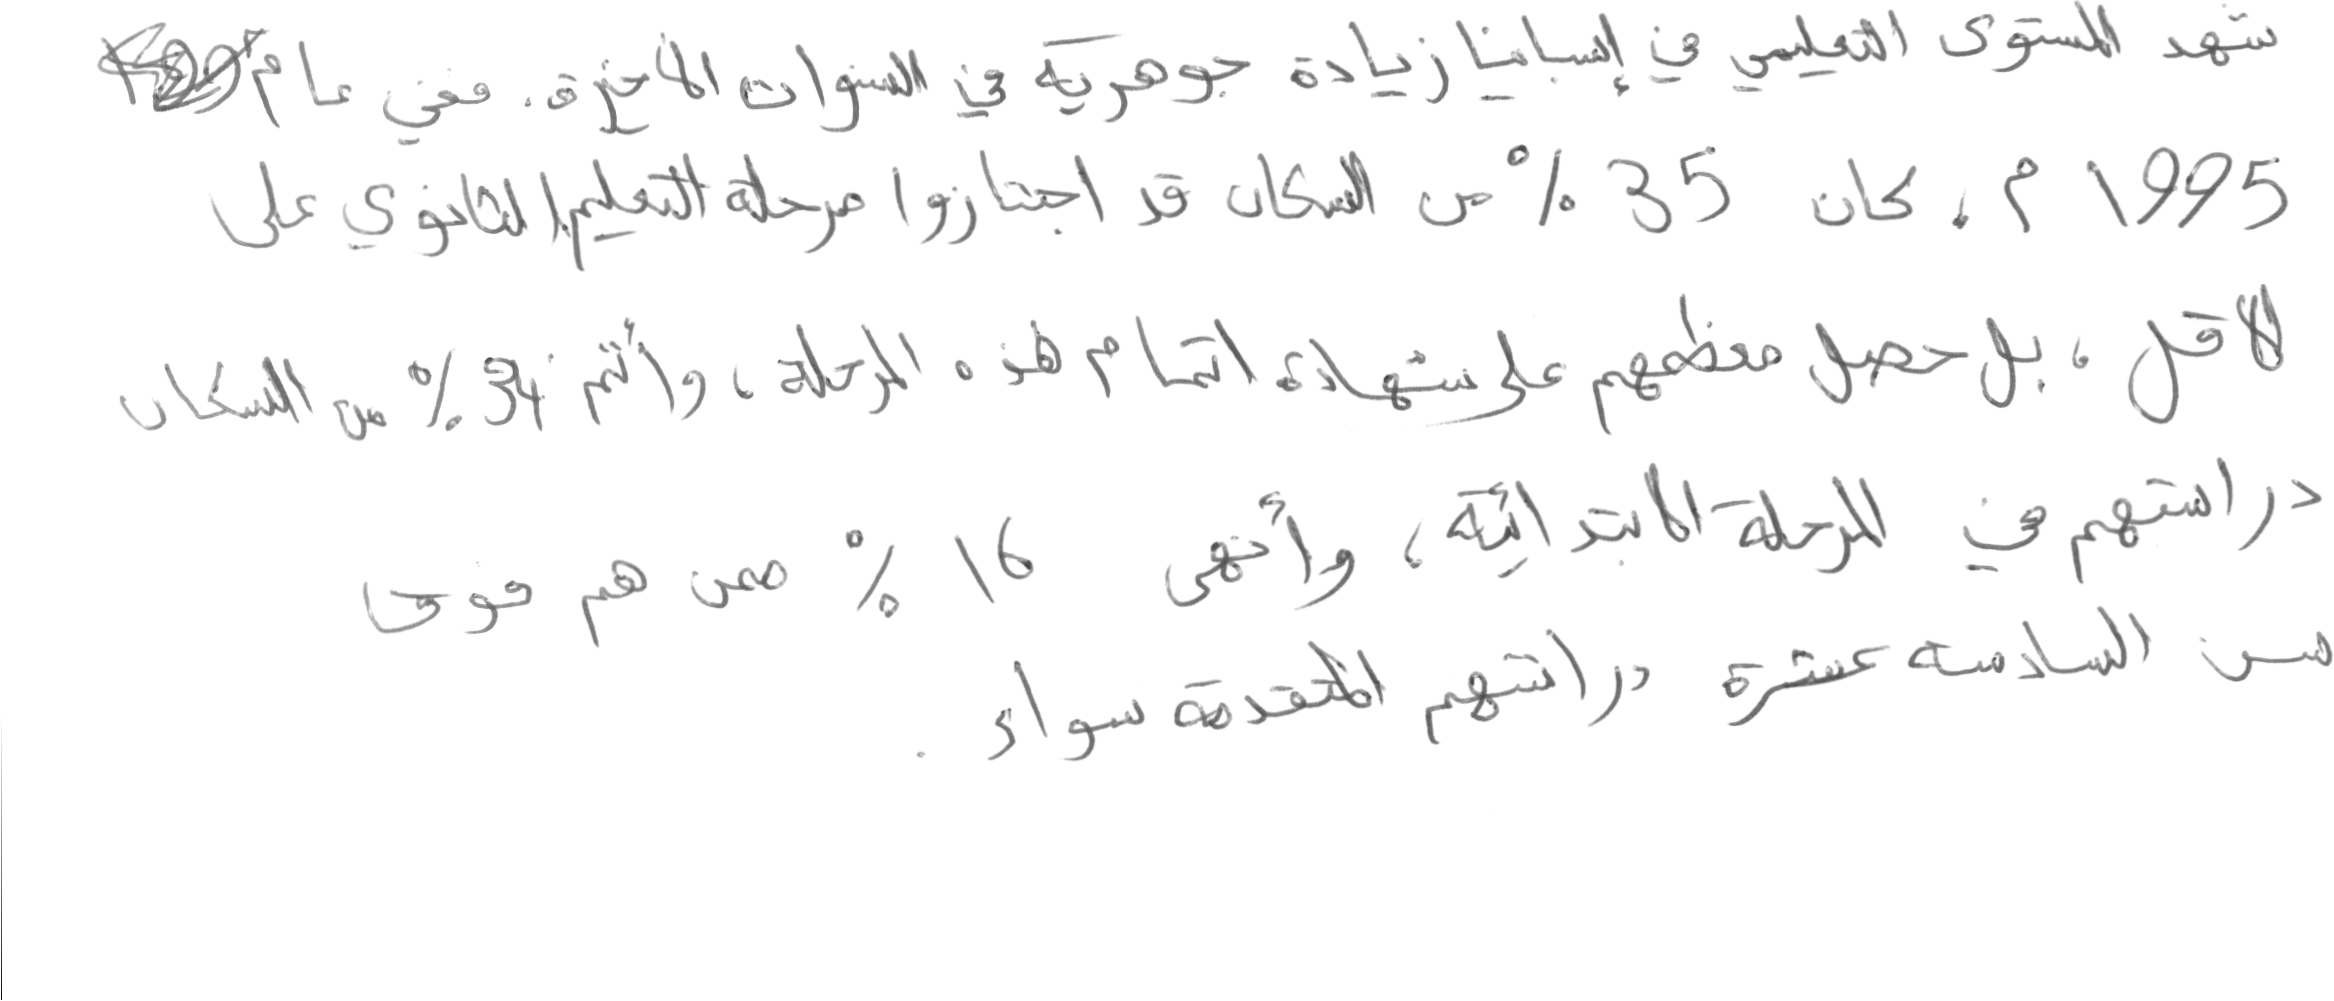 شهد المستوى التعليمي في إسبانيا زيادة جوهرية في السنوات الأخيرة. ففي عام
1995 م، كان 35 % من السكان قد اجتازوا مرحلة التعليم الثانوي على
لاقل، بل حصل معظمهم على شهادة اتمام هذه المرحلة، وأتم 34 % من السكان
دراستهم في المرحلة الابتدائية، وأنهى 16 % ممن هم فوق
سن السادسة عشرة دراستهم المتقدمة سواء .